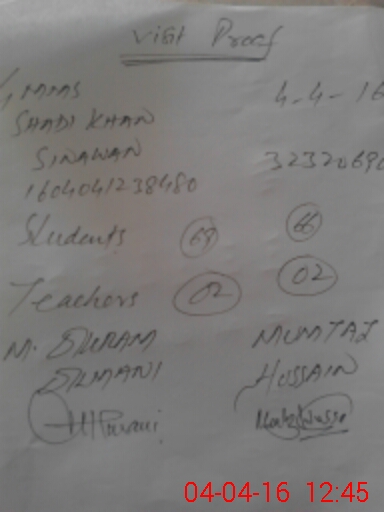 Visit Proof
GMMS 4-4-16
SHADI KHAN
SINAWAN 32320690
1604041238480
Students 69 66
Teachers 02 02
M. MUMTAZ
HUSSAIN
04-04-16 12:45